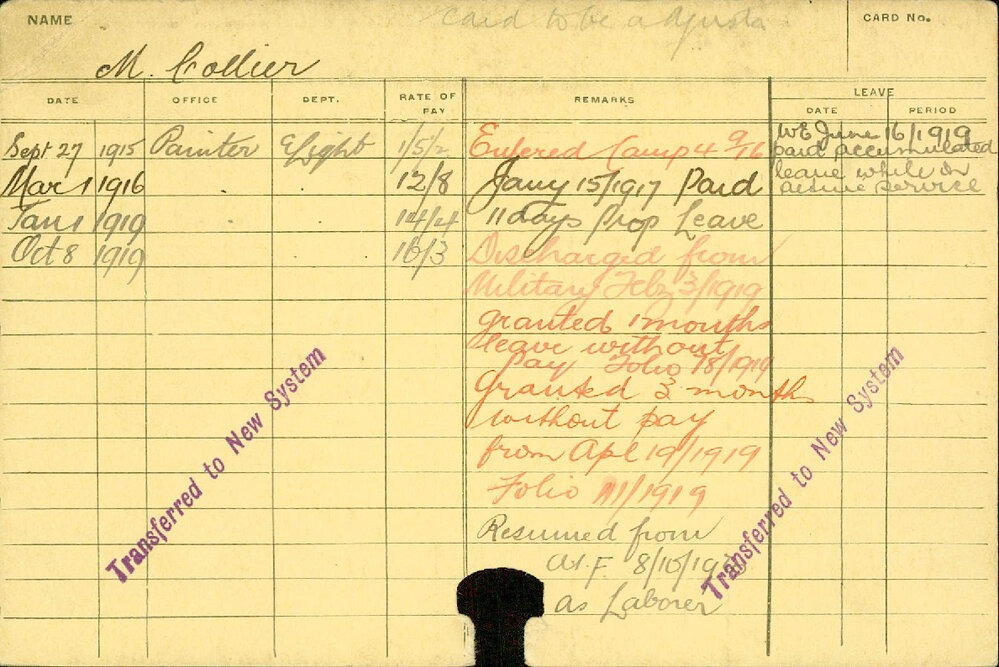 NAME
Card to be
CARD No.
M. Collier
DATE OFFICE DEPT. RATE OF PAY REMARKS LEAVE
DATE PERIOD
Sept 27 1915 Painter ELight 1/5/2 Entered Camp 4 9/16
Mar 1 1916 12/8 Jany 15/1917 Paid
Jan 1 1919 14/4 11 days Prop Leave
Oct 8 1919 16/3 Discharged from
Military Feb 3/1919
granted 1 months
leave without
pay Folio 78/1919
Granted 3 months
without pay
from Apl 19/1919
Folio /1919
Resumed from
8/10/19
as Laborer
WE June 16/1919
paid accumulated
leave while on
active service
Transferred to New System
Transferred to New System